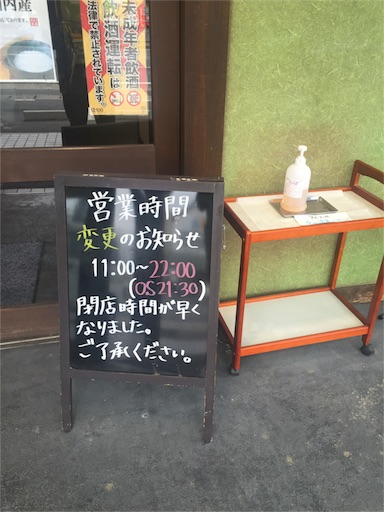 内産
未成年者飲酒
飲酒運転は
法律で禁止されています。
営業時間
変更のお知らせ
11:00〜22:00
(OS.21:30)
閉店時間が早く
なりました。
ご了承ください。